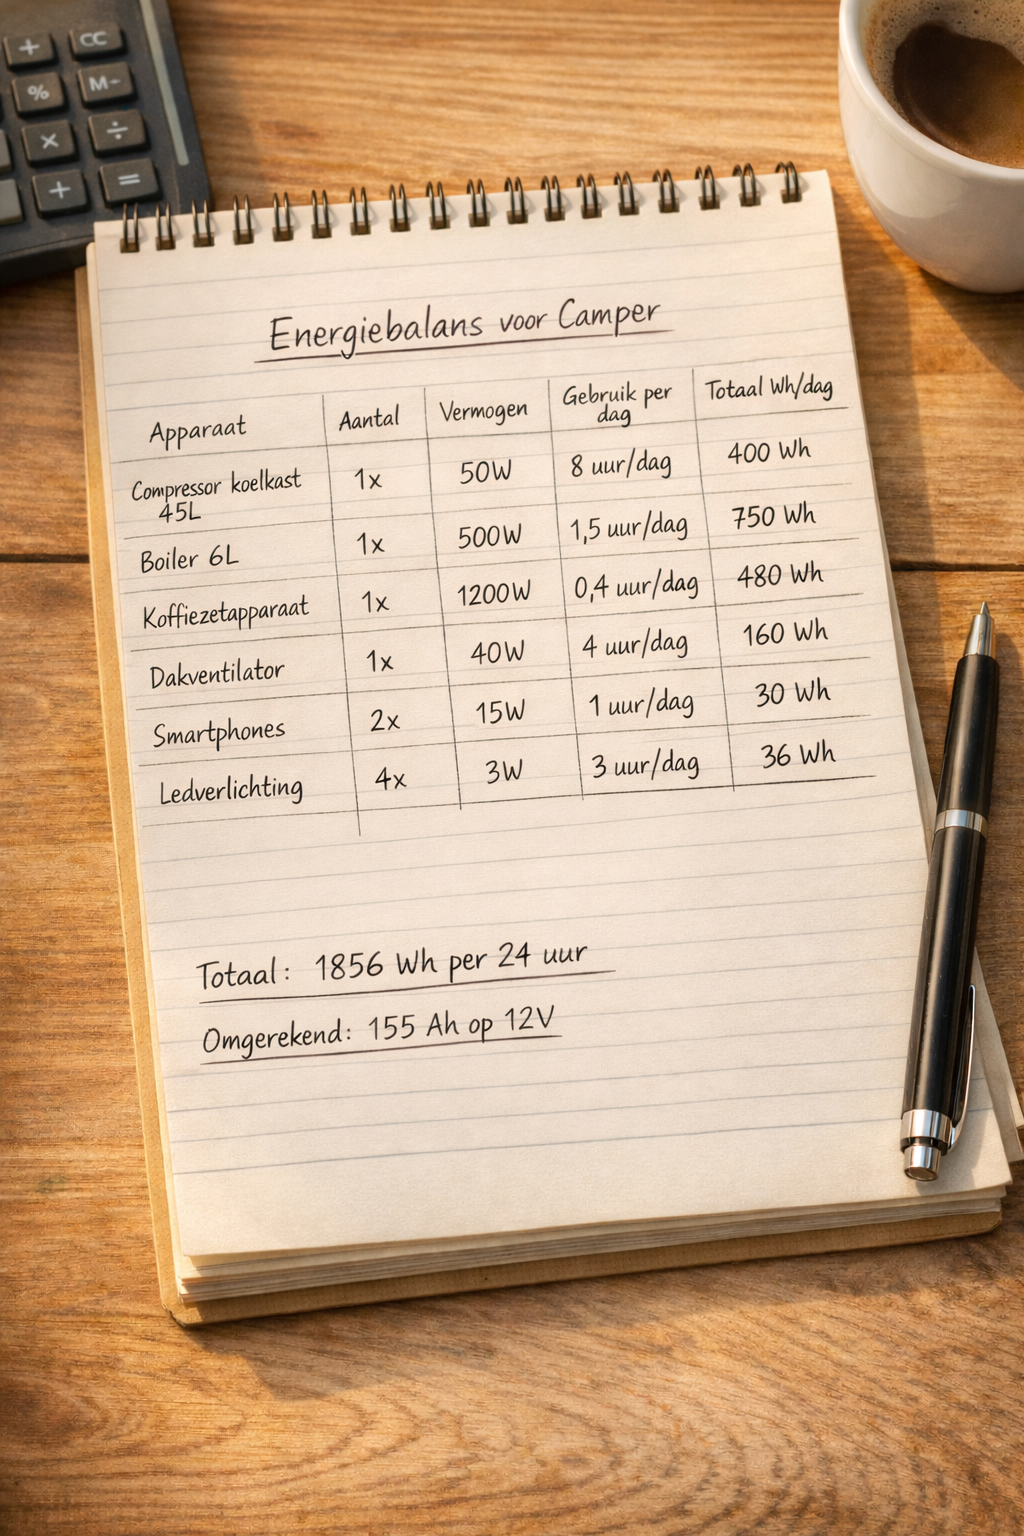 + CC
% M-
× ÷
+ =
Energiebalans voor Camper
Apparaat Aantal Vermogen Gebruik per dag Totaal Wh/dag
Compressor koelkast 45L 1x 50W 8 uur/dag 400 Wh
Boiler 6L 1x 500W 1,5 uur/dag 750 Wh
Koffiezetapparaat 1x 1200W 0,4 uur/dag 480 Wh
Dakventilator 1x 40W 4 uur/dag 160 Wh
Smartphones 2x 15W 1 uur/dag 30 Wh
Ledverlichting 4x 3W 3 uur/dag 36 Wh
Totaal: 1856 Wh per 24 uur
Omgerekend: 155 Ah op 12V